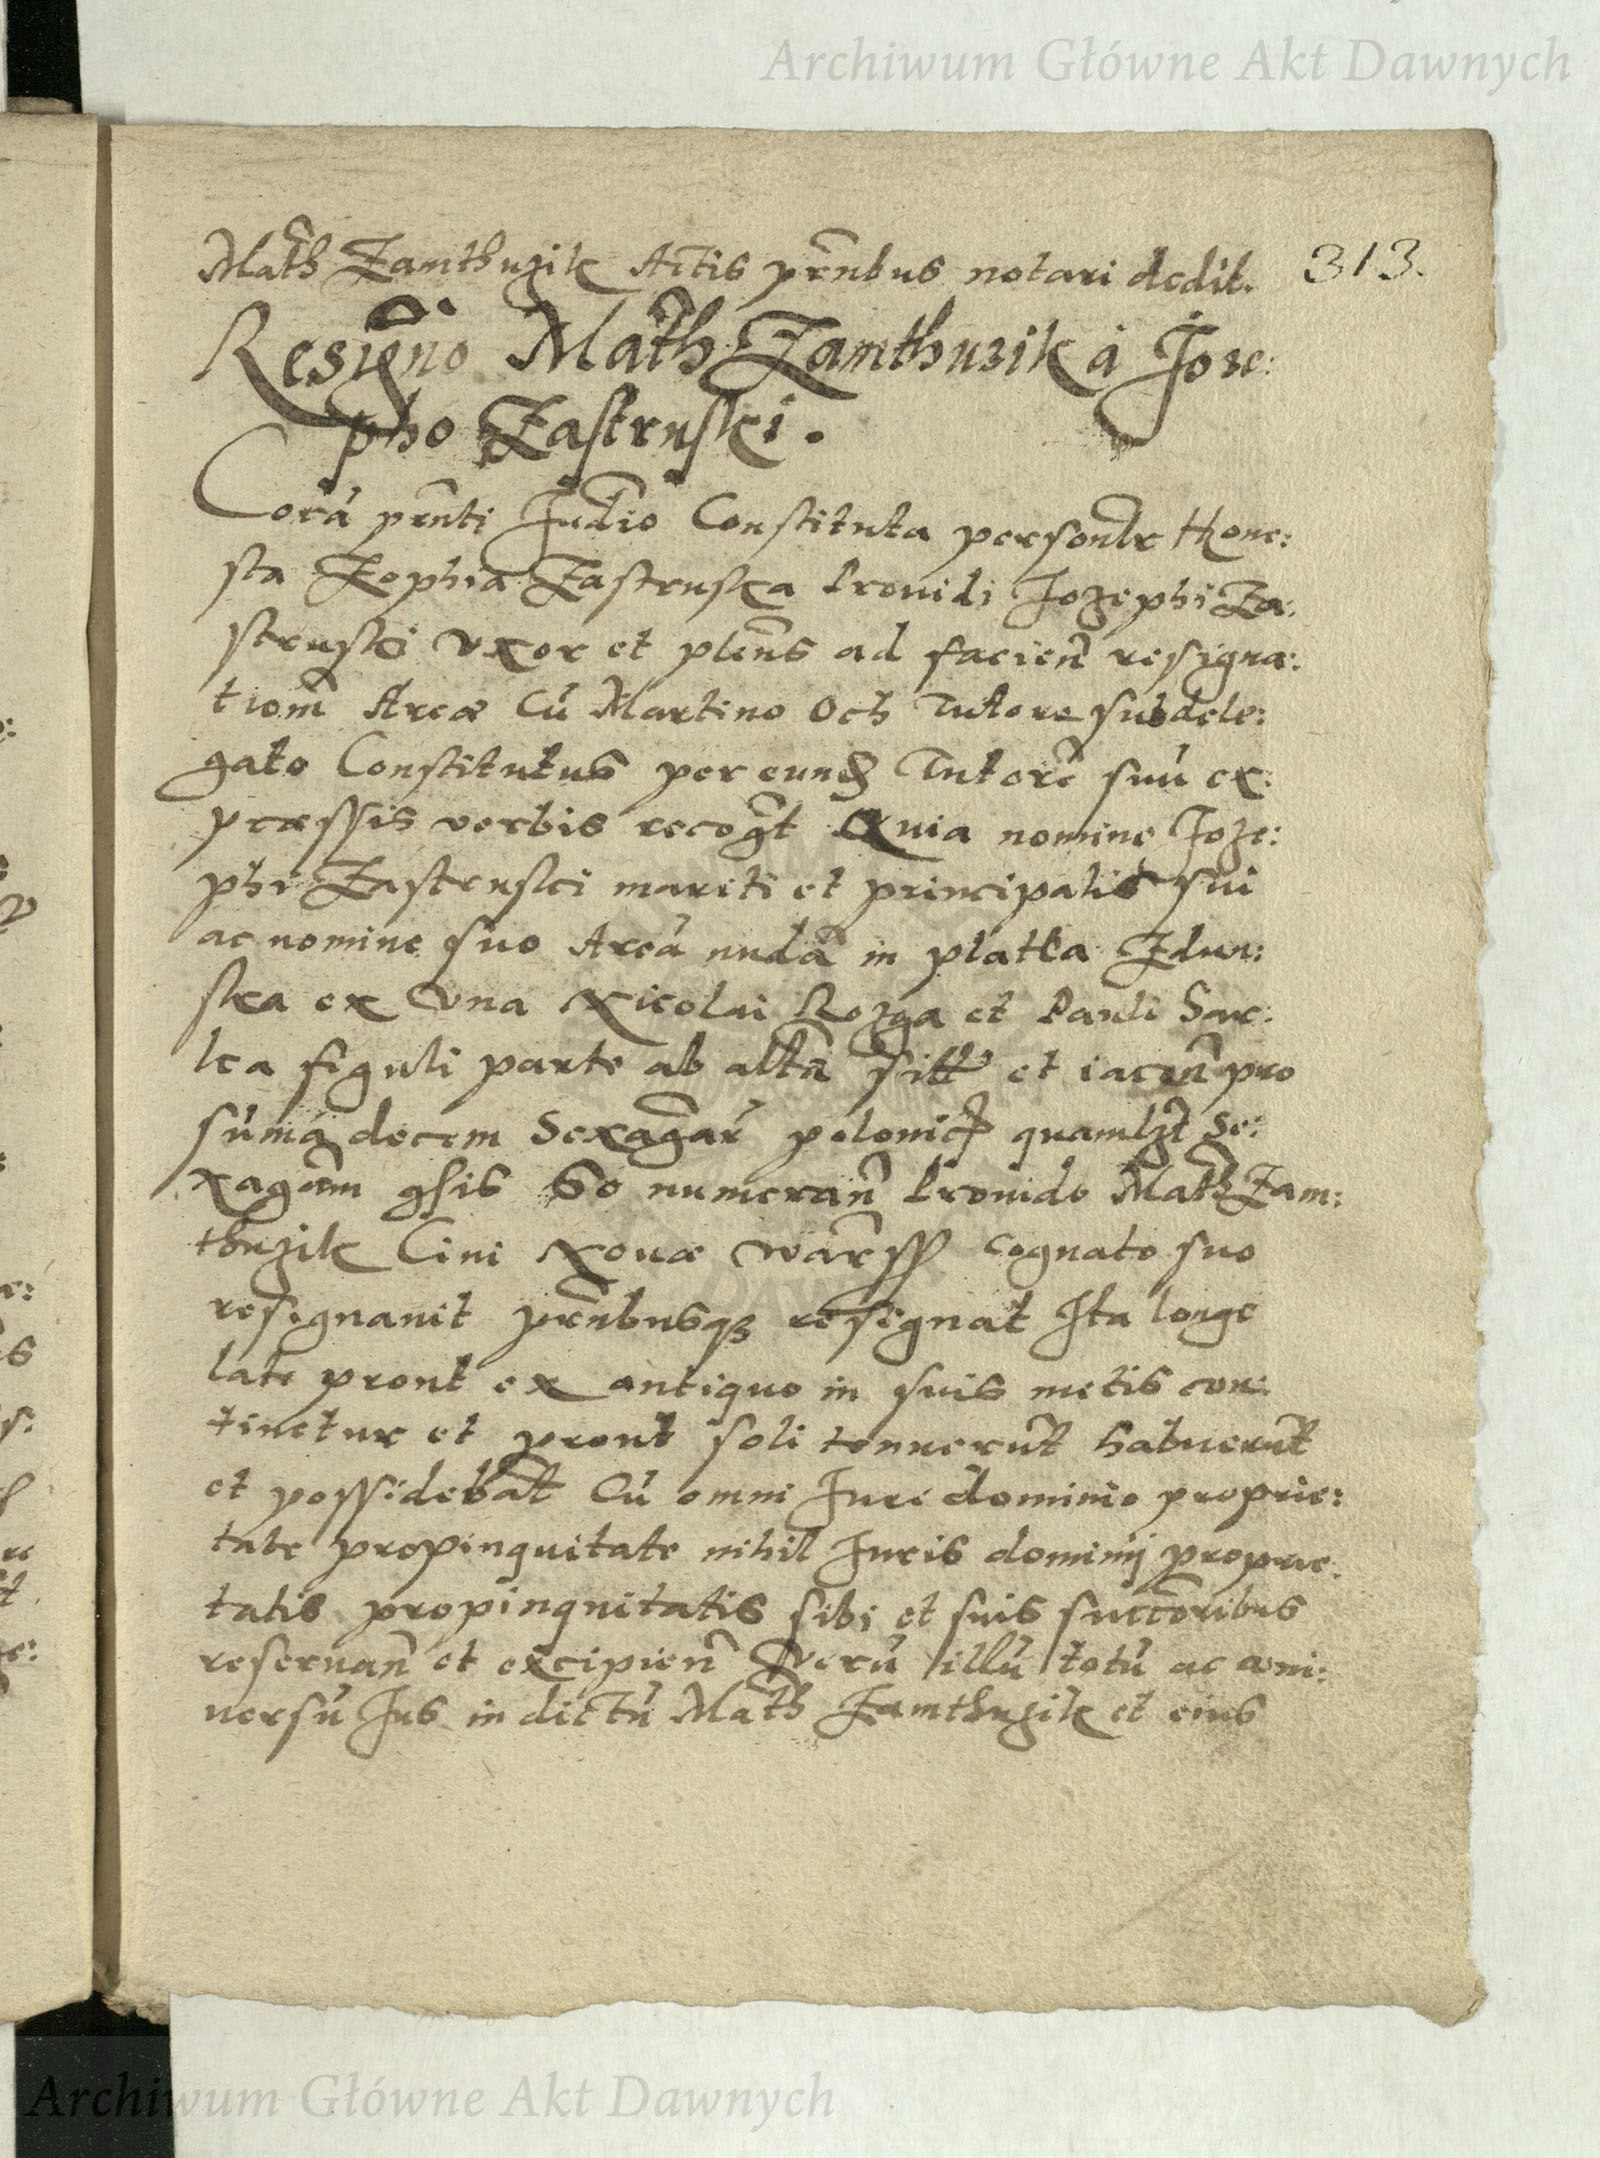 Archiwum Główne Akt Dawnych
313.
Math Zamthuzik Actis prñbus notari dedit.
Resigño Math Zamthuzik á Jose:
pho Zastruski.
Corã prñti Judio Constituta personlr Hone:
sta Zophia Zastruska Prouidi Jozephi Za:
struski vxor et pleñs ad facień resigna:
tiom̃ Areæ Cũ Martino Och Tutore subdele:
gato Constitutus per eund Tutorẽ suũ ex:
præssis verbis recogt Quia nomine Joze:
phi Zastruski mariti et principalis sui
ac nomine suo Areã nudã in platea Zdun:
ska ex vna Nicolai Rozga et Pauli Sar:
ka figuli parte ab altã sitt et iaceñ pro
sũma decem Sexagar̃ polonic quamlzt Se:
xagem̃ gsis 60 numerañ Prouido Math Zam:
thuzik Ciui Nouæ Warss cognato suo
resignauit prñbusq resignat Ita longe
late prout ex antiquo in suis metis con:
tinetur et prout soli tenuerũt habuerũt
et possidebãt Cũ omni Jure dominio proprie:
tate propinquitate nihil Juris dominij proprie:
tatis propinquitatis sibi et suis succoribus
reseruañ et excipień Verũ illũ totũ ac vni:
uersũ Jus in dictũ Math Zamthuzik et eius
Archiwum Główne Akt Dawnych